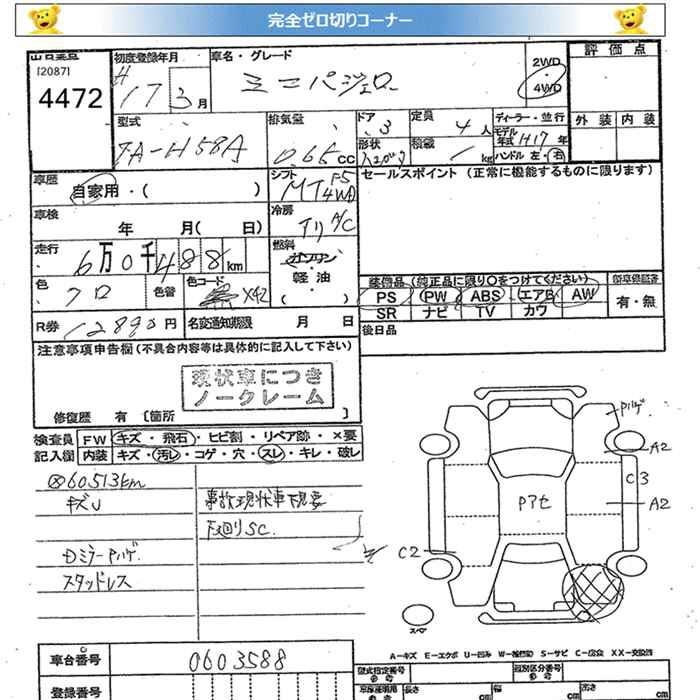 完全ゼロ切りコーナー
[2087] 初度登録年月 車名・グレード 2WD 評価点
4472 H17 3月 ミニパジェロ 4WD
型式 排気量 ドア 定員 ディーラー・並行 外装 内装
TA-H58A 0.65cc 3 4人 モデル年式 H17年
形状 積載 kg ハンドル 左・右
車歴 シフト セールスポイント (正常に機能するものに限ります)
自家用・( ) MT F5 4WD
車検 冷房
年 月( 日) A/C
走行 燃料
6万0千488km ガソリン・軽油・( )
色 色替 色コード 装備品 (純正品に限り○をつけてください)
クロ X42 PS PW ABS エアB AW 有・無
R券 12890円 名変通知期限 月 日 SR ナビ TV カワ
後日品
注意事項申告欄 (不具合内容等は具体的に記入して下さい)
現状車につき
ノークレーム
修復歴 有 [箇所 ]
検査員 FW キズ・飛石・ヒビ割・リペア跡・×要
記入欄 内装 キズ・汚レ・コゲ・穴・スレ・キレ・破レ
60513km
キズU 事故現状車下現要
下廻りSC
Dミラーハゲ
スタッドレス
ハゲ
A2
C3
A2
Pアセ
C2
スペア
A-キズ E-エクボ U-凹み W-補修跡 S-サビ C-腐食 XX-交換済
車台番号 0603588
型式指定番号 類別区分番号
登録番号 長さ cm 幅 cm 高さ cm